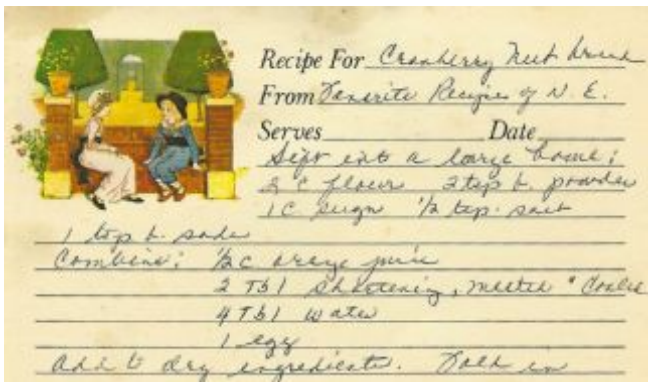 Recipe For Cranberry Nut Bread
From Favorite Recipes of N. E.
Serves Date
Sift into a large bowl:
2 c flour 2 tsp b. powder
1 c sugar 1/2 tsp. salt
1 tsp b. soda
Combine: 1/2 c orange juice
2 Tbl shortening, melted & cooled
4 Tbl water
1 egg
Add to dry ingredients. Fold in